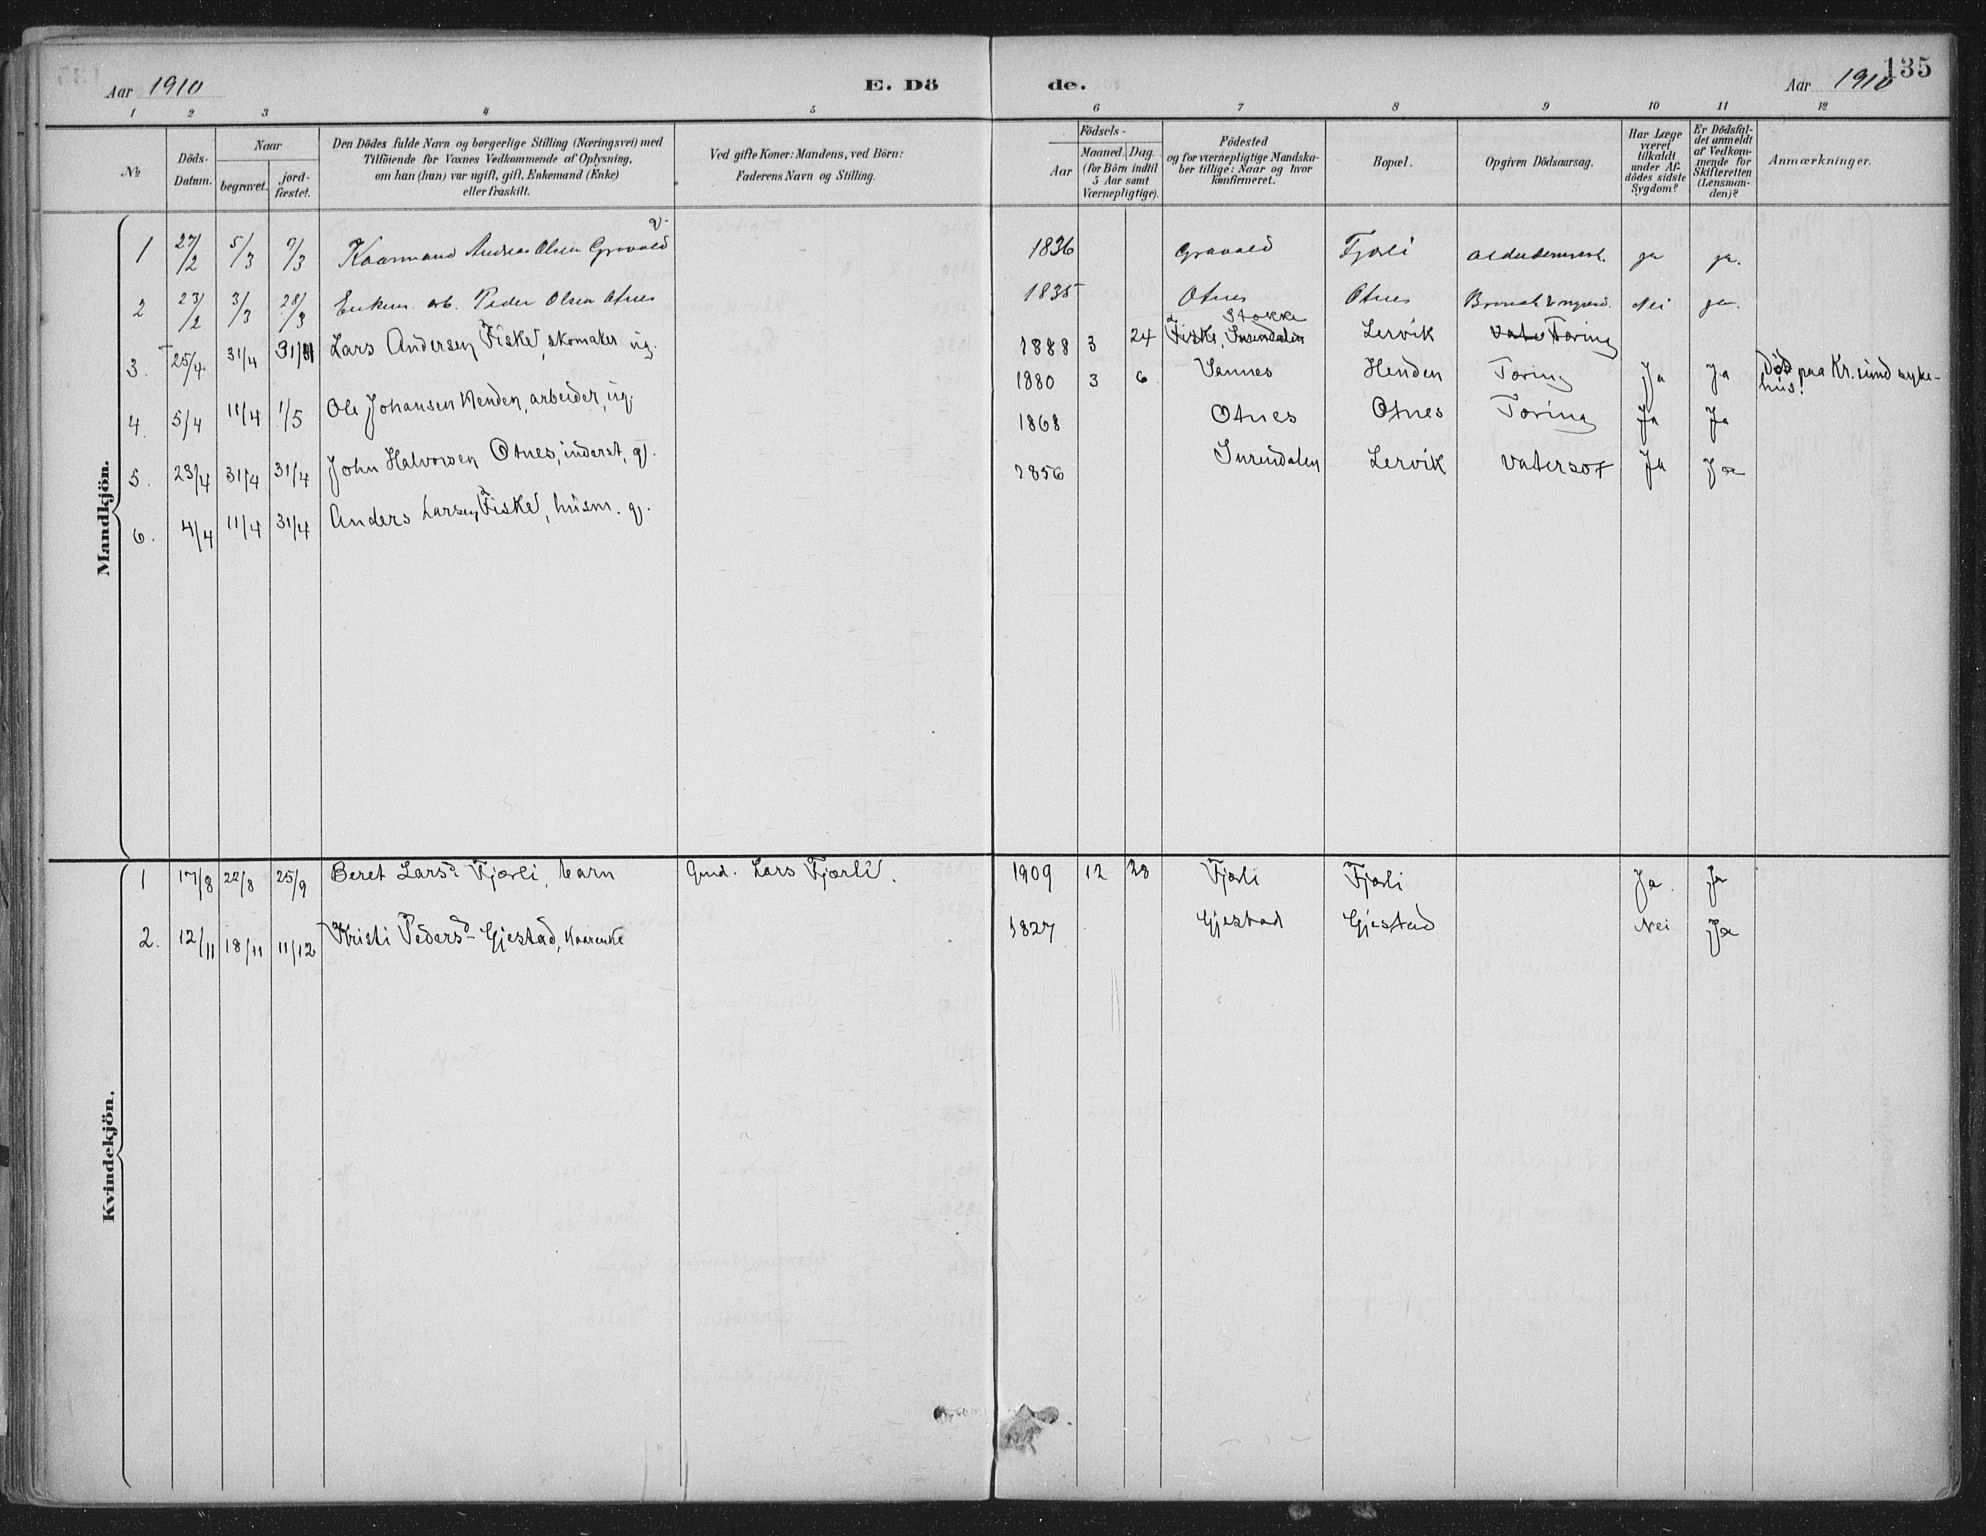 Aar 1910
E. Dö
de.
Aar 1910
135
1 2 3 4 5 6 7 8 9 10 11 12
No
Döds-Datum.
Naar
begravet.
jord-fæstet.
Den Dödes fulde Navn og borgerlige Stilling (Næringsvei) med
Tilföiende for Voxnes Vedkommende af Oplysning,
om han (hun) var ugift, gift, Enkemand (Enke)
eller fraskilt.
Ved gifte Koner: Mandens, ved Börn:
Faderens Navn og Stilling.
Födsels-
Aar
Maaned. Dag.
(for Börn indtil
5 Aar samt
Værnepligtige).
Födested
og for værnepligtige Mandska-
ber tillige: Naar og hvor
konfirmeret.
Bopæl.
Opgiven Dödsaarsag.
Har Læge
været
tilkaldt
under Af-
dödes sidste
Sygdom?
Er Dödsfal-
det anmeldt
af Vedkom-
mende for
Skifteretten
(Lensman-
den)?
Anmærkninger.
Mandkjön.
1 27/2 5/3 7/3 Kaarmand Andreas Olsen Gravald g. 1836 Gravald Fjærli ja ja.
2 23/2 3/3 28/3 Enkem. arb. Peder Olsen Otnes 1835 Otnes Otnes Nei ja.
3. 25/4 31/4 31/4 Lars Andersen Fiske, skomaker ug. 1888 3 24 Fiske, Surendalen Stokke Lervik Tæring
4. 5/4 11/4 1/5 Ole Johansen Henden, arbeider, ug. 1880 3 6 Vennes Henden Tæring Ja Ja Död paa Kr.sund syke-
hus.
5. 23/4 31/4 31/4 John Halvorsen Otnes, inderst, gj. 1868 Otnes Otnes Tæring Ja Ja
6. 4/4 11/4 31/4 Anders Larsen Fiske, husm. gj. 1856 Surendalen Lervik Vatersot Ja Ja
Kvindekjön.
1 17/8 22/8 25/9 Beret Larsd Fjærli, barn Gmd. Lars Fjærli. 1909 12 28 Fjærli Fjærli Ja. Ja
2. 12/11 18/11 11/12 Kristi Pedersd Gjestad, Kaarenke 1827 Gjestad Gjestad Nei Ja